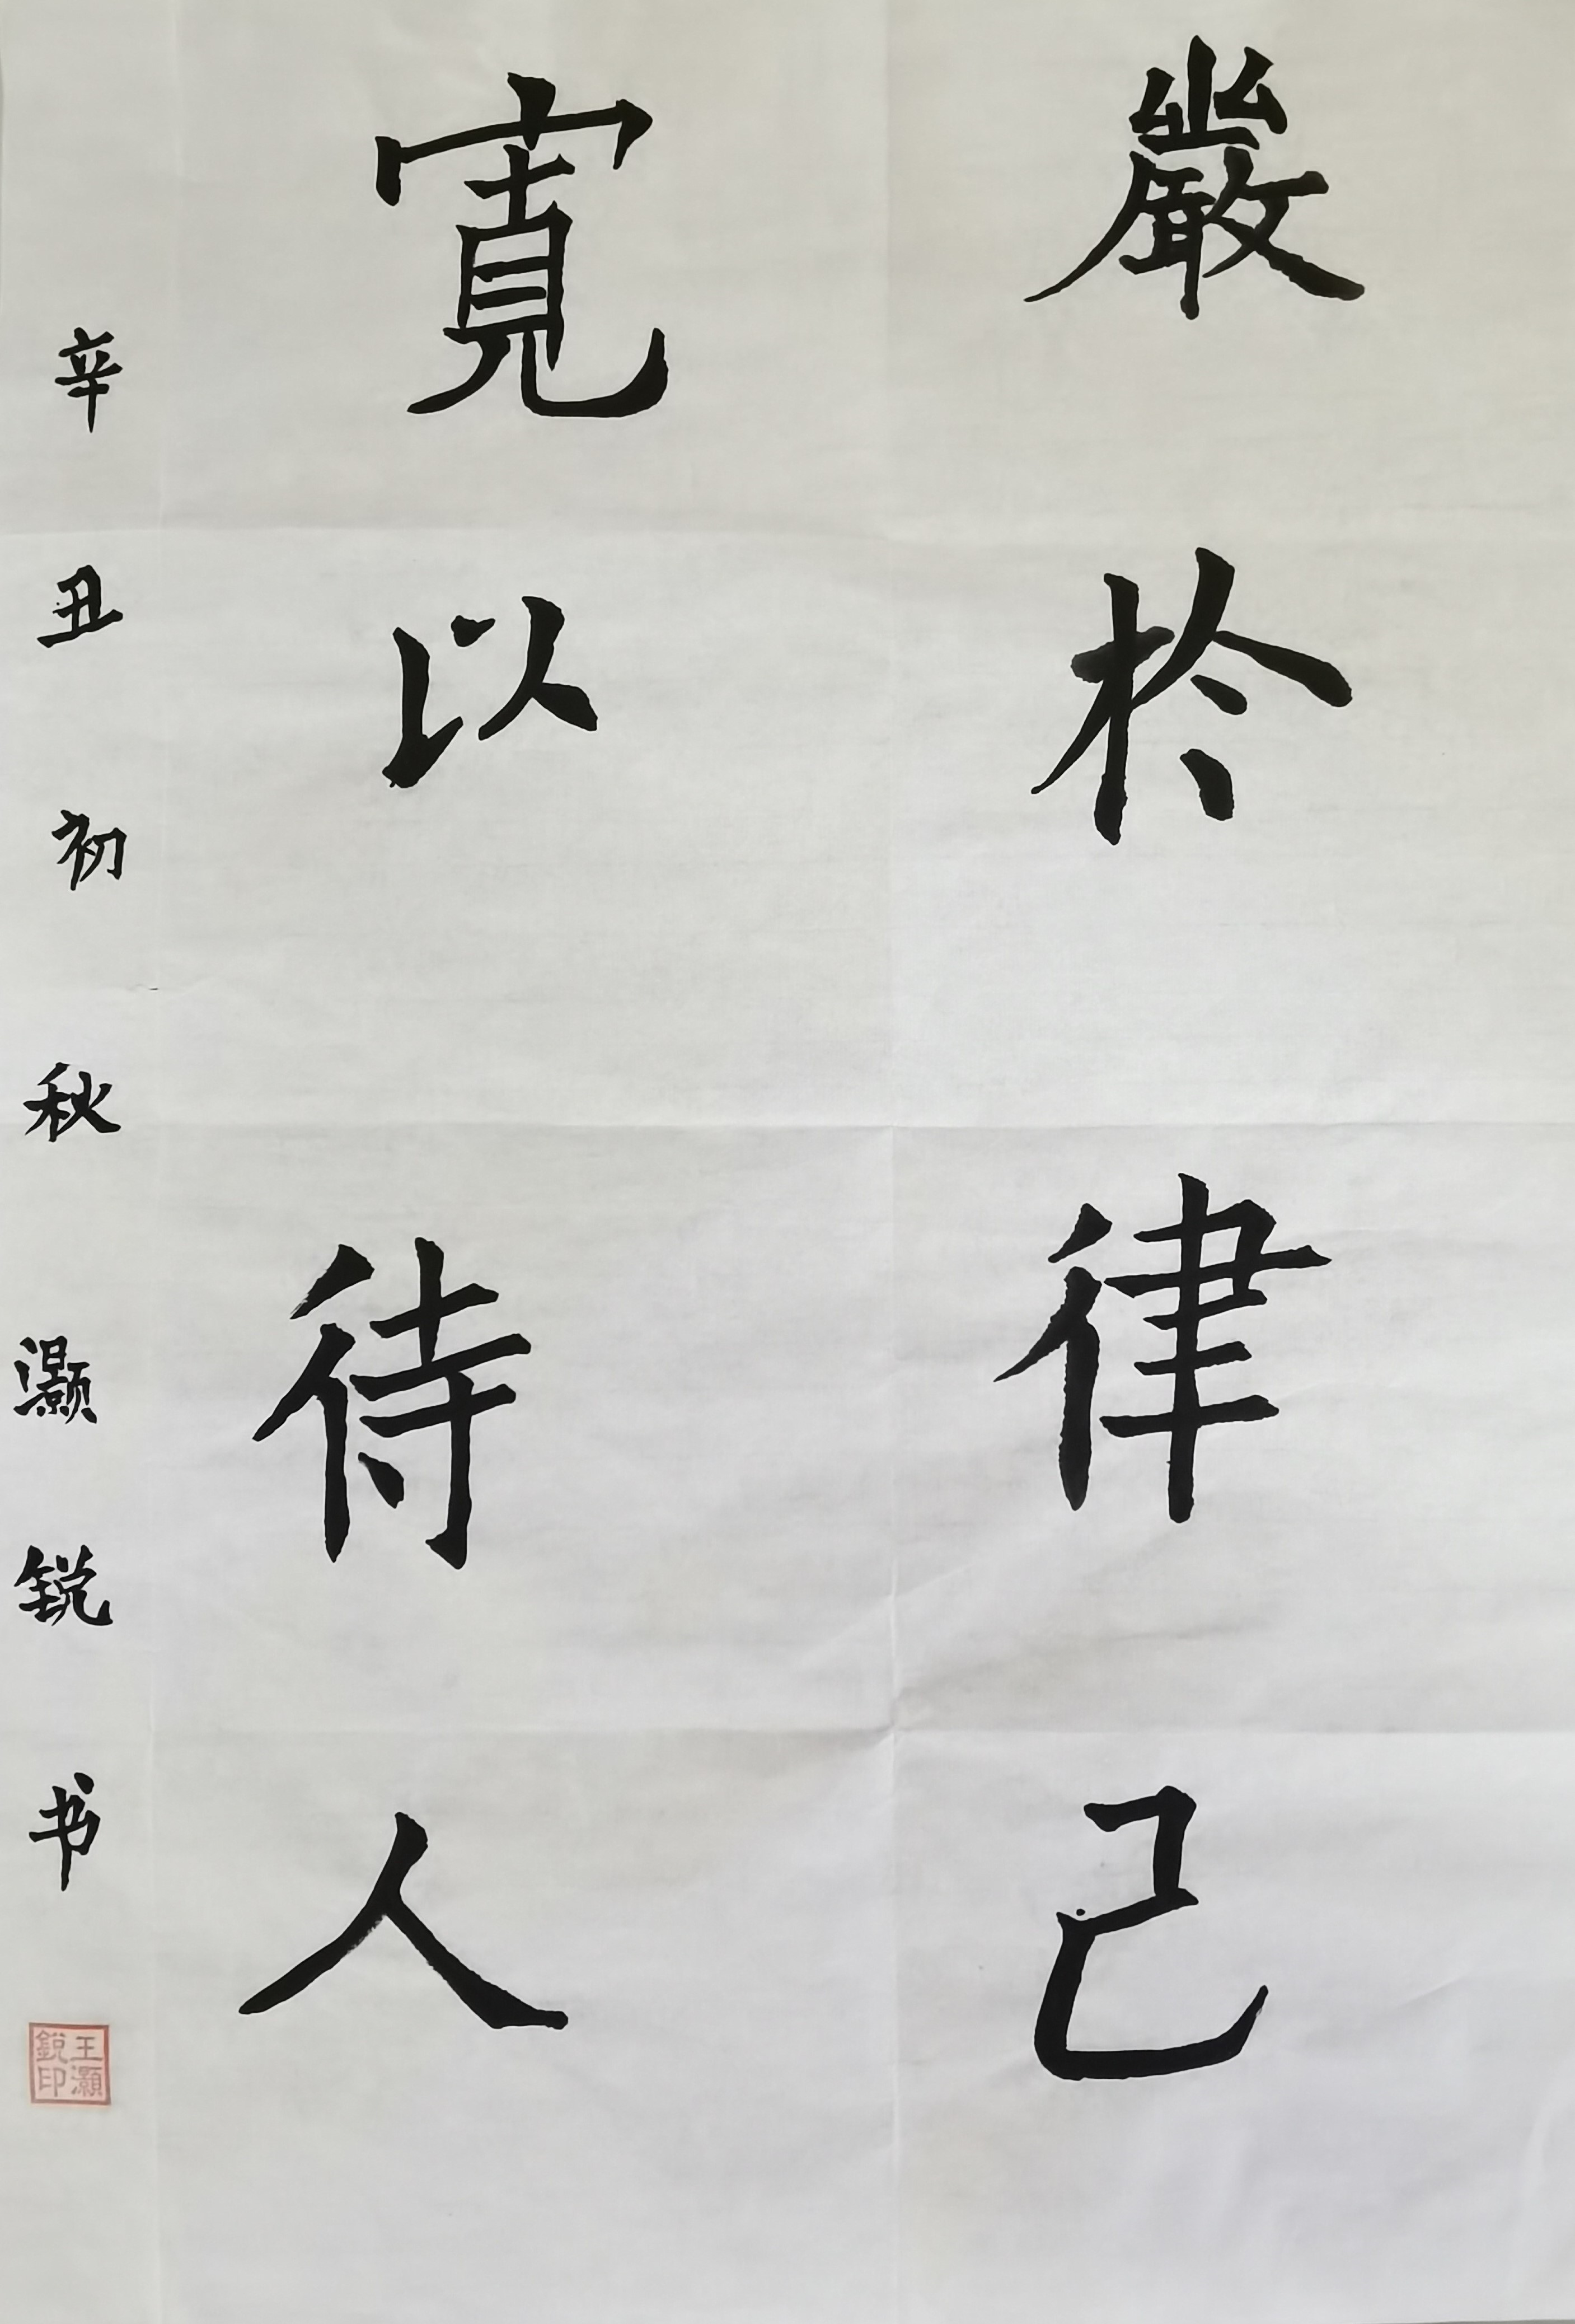 嚴於律己
寬以待人
辛丑初秋灏锐书
王灝銳印